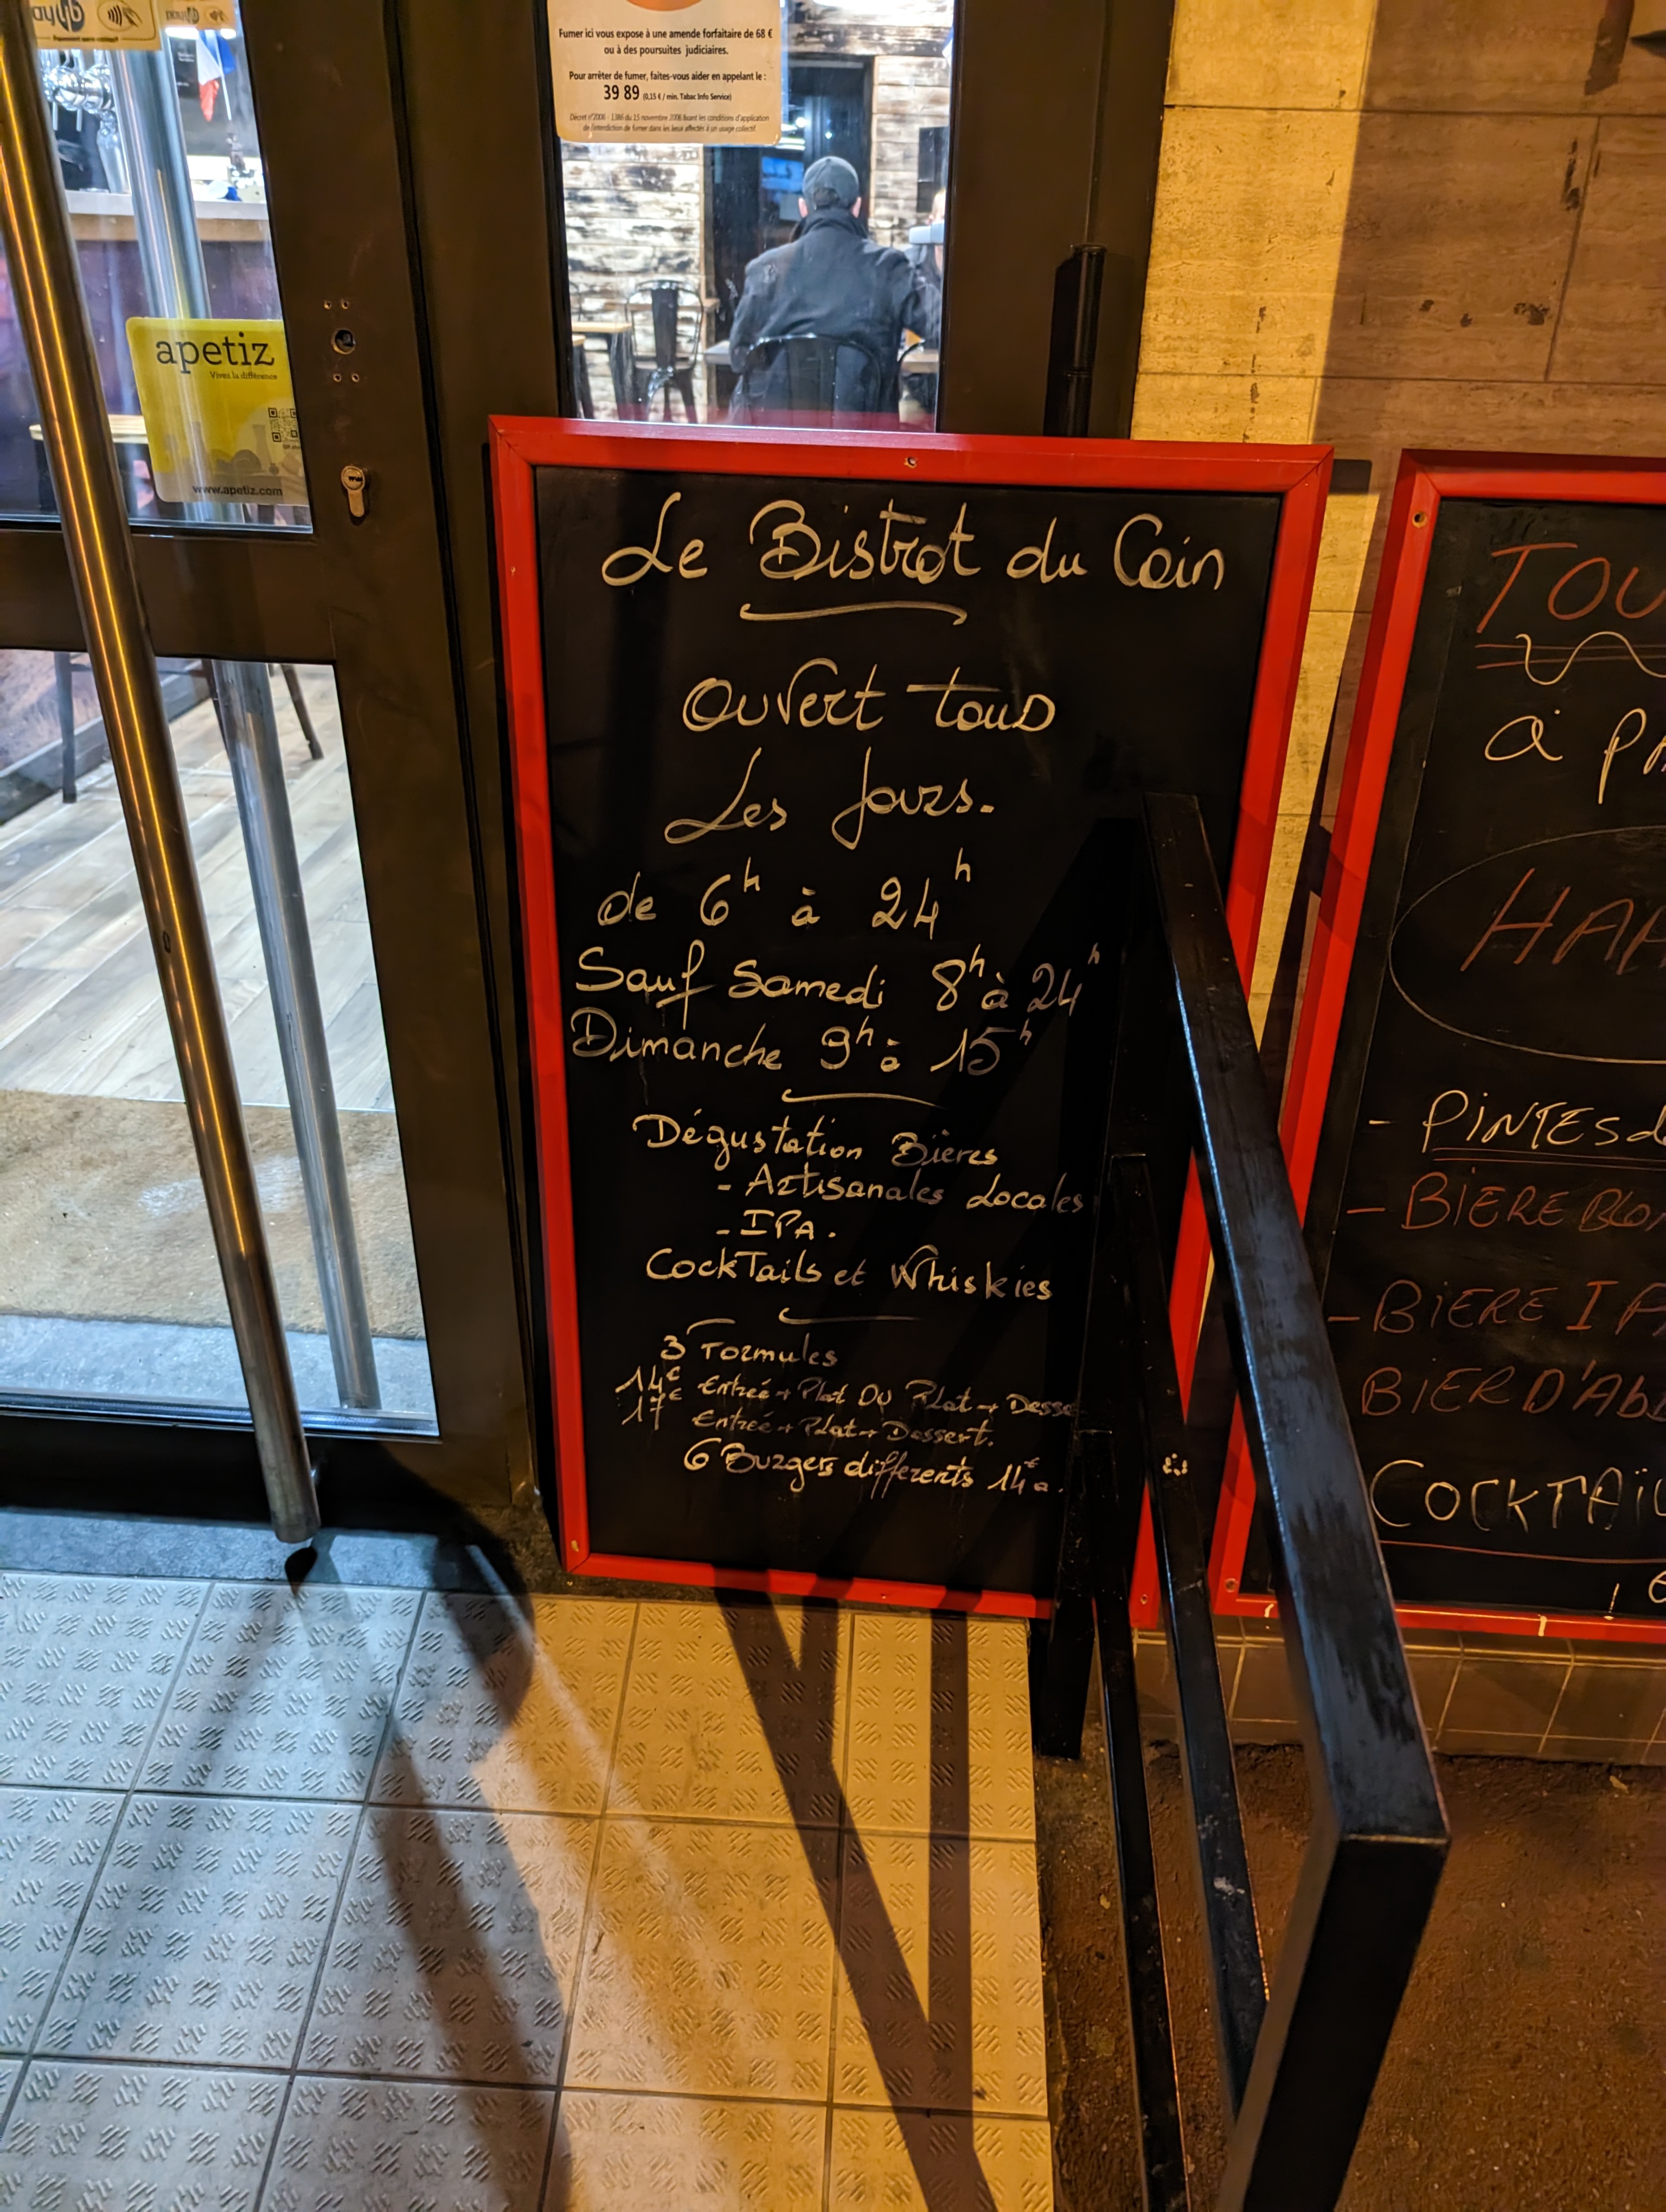 Fumer ici vous expose à une amende forfaitaire de 68 €
ou à des poursuites judiciaires.
Pour arrêter de fumer, faites-vous aider en appelant le :
39 89 (0,15 € / min. Tabac Info Service)
Décret n°2006 - 1386 du 15 novembre 2006 fixant les conditions d'application
de l'interdiction de fumer dans les lieux affectés à un usage collectif
apetiz
Vivez la différence
www.apetiz.com
Le Bistrot du Coin
Ouvert tous
Les Jours.
de 6h à 24h
Sauf Samedi 8h à 24h
Dimanche 9h à 15h
Dégustation Bières
- Artisanales Locales
- IPA.
Cocktails et Whiskies
3 Formules
14€ Entrée + Plat OU Plat + Desse
17€ Entrée + Plat + Dessert.
6 Burgers differents 14€
TOU
à PA
HAP
- PINTES d
- BIERE BLON
- BIERE IPA
BIER D'Ab
COCKTAÏL